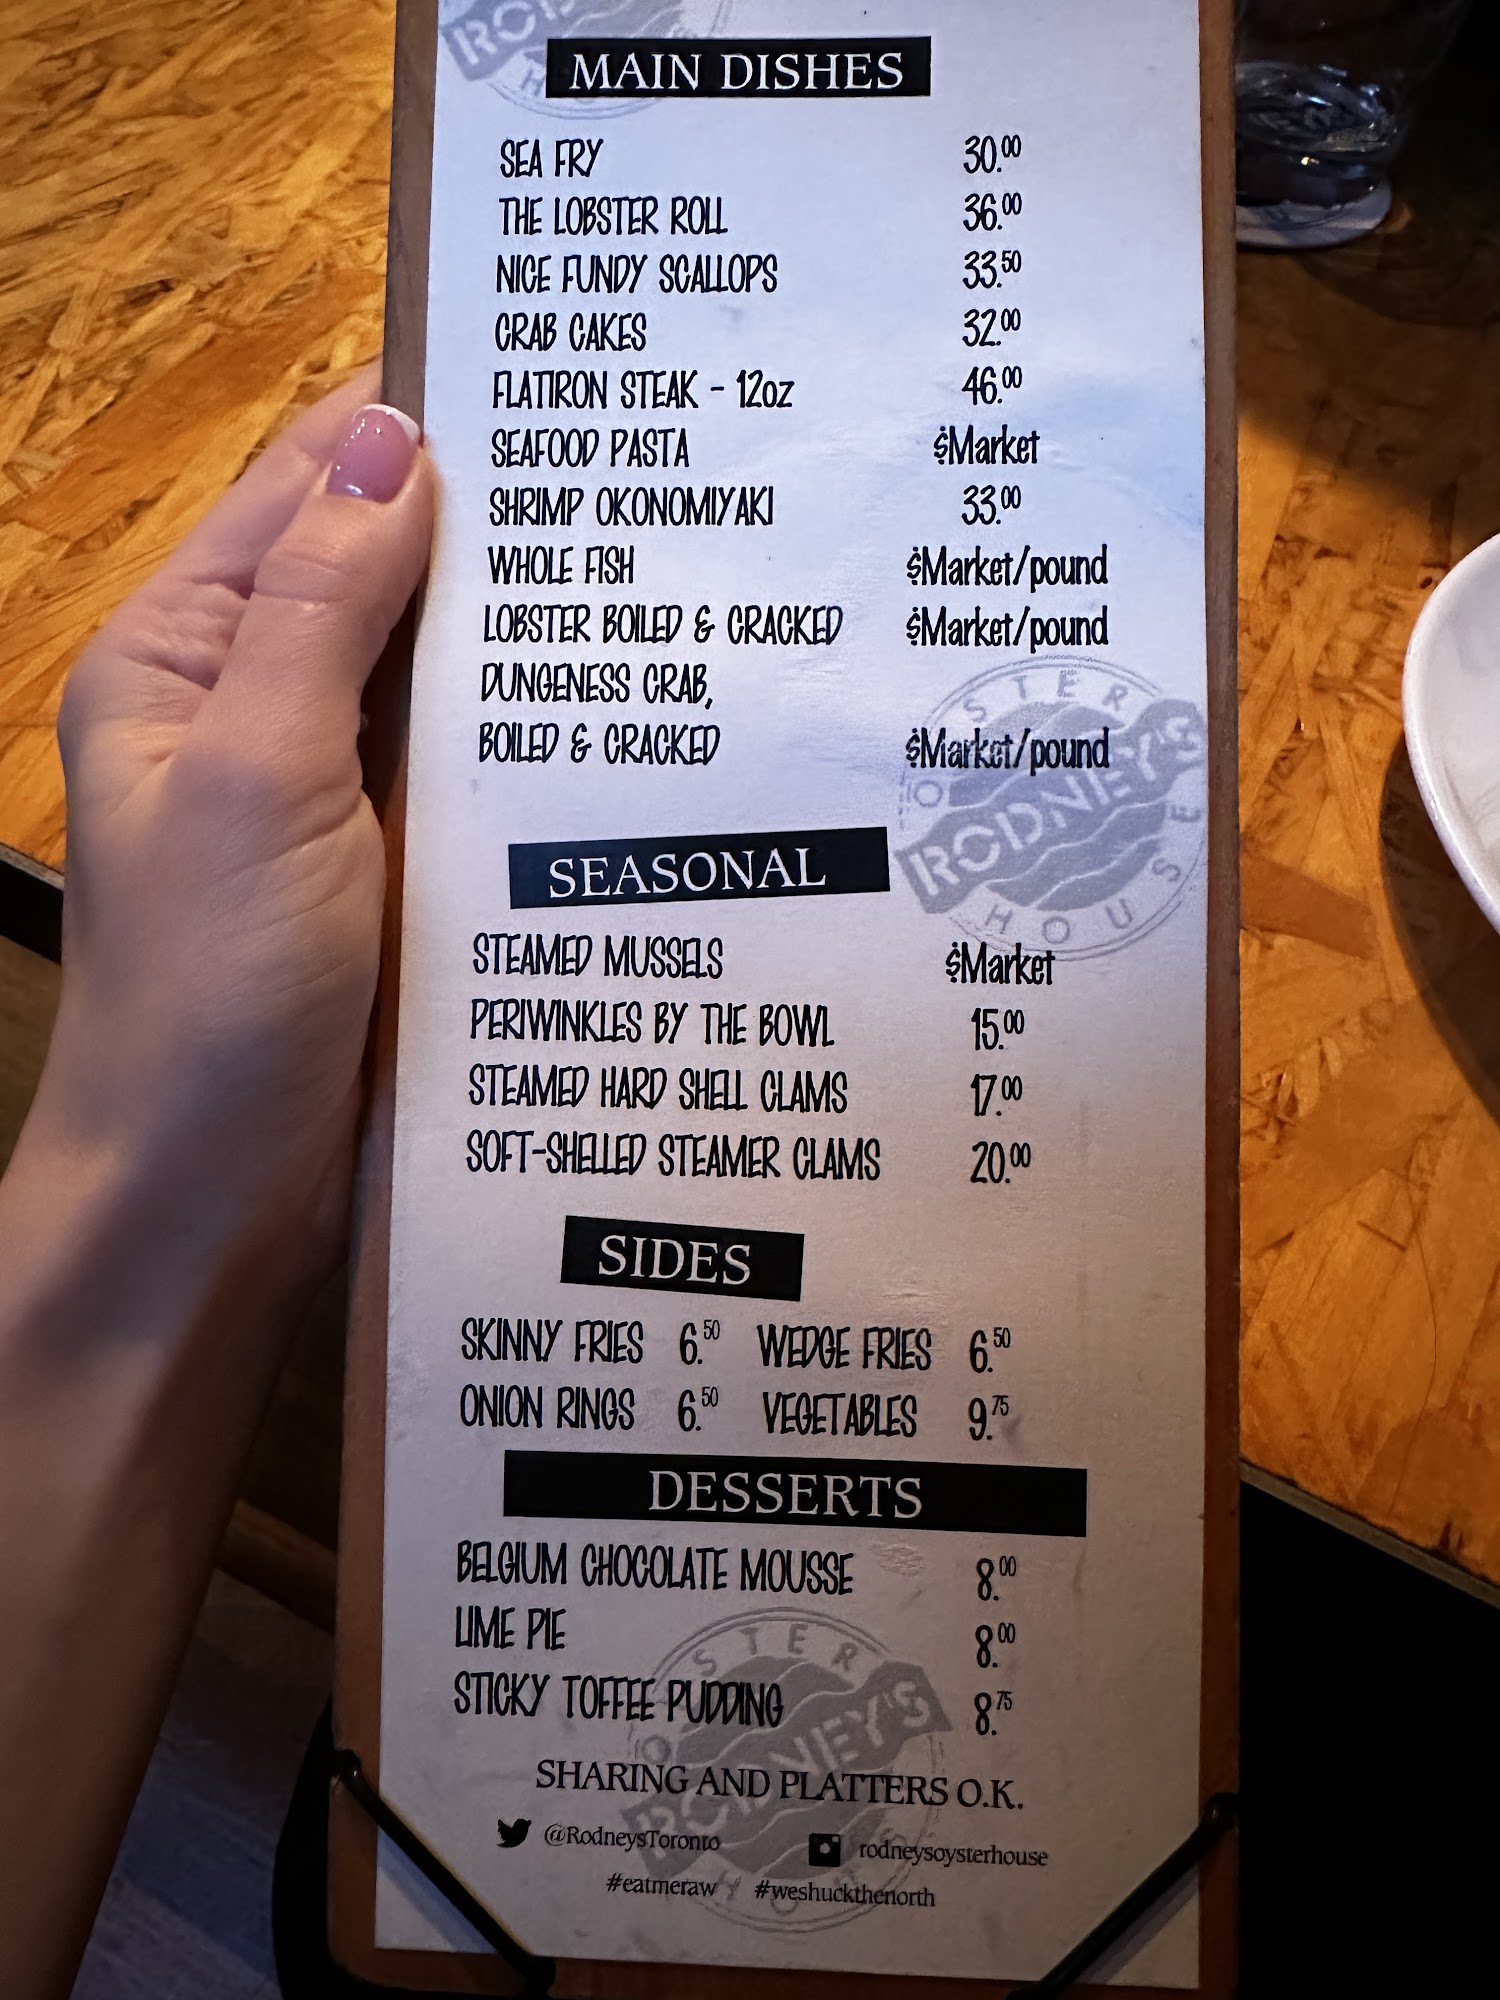 MAIN DISHES
SEA FRY 30.00
THE LOBSTER ROLL 36.00
NICE FUNDY SCALLOPS 33.50
CRAB CAKES 32.00
FLATIRON STEAK - 12oz 46.00
SEAFOOD PASTA $Market
SHRIMP OKONOMIYAKI 33.00
WHOLE FISH $Market/pound
LOBSTER BOILED & CRACKED $Market/pound
DUNGENESS CRAB,
BOILED & CRACKED $Market/pound
RODNEY'S OYSTER HOUSE
SEASONAL
STEAMED MUSSELS $Market
PERIWINKLES BY THE BOWL 15.00
STEAMED HARD SHELL CLAMS 17.00
SOFT-SHELLED STEAMER CLAMS 20.00
SIDES
SKINNY FRIES 6.50 WEDGE FRIES 6.50
ONION RINGS 6.50 VEGETABLES 9.75
DESSERTS
BELGIUM CHOCOLATE MOUSSE 8.00
LIME PIE 8.00
STICKY TOFFEE PUDDING 8.75
RODNEY'S OYSTER HOUSE
SHARING AND PLATTERS O.K.
@RodneysToronto rodneysoysterhouse
#eatmeraw #weshuckthenorth